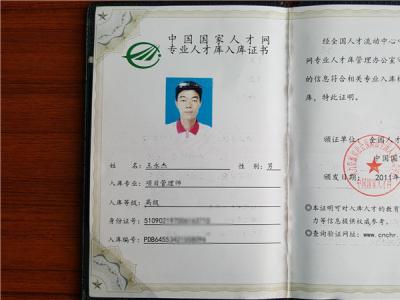 中国国家人才网
专业人才库入库证书
姓 名: 王永杰 性 别: 男
入库专业: 项目管理师
入库等级: 高级
身份证号: 51090
入库编号: PDB645
经全国人才流动中心
网专业人才库管理办公室
的信息符合相关专业入库
库，特此证明。
颁证单位: 全国人才
中国国
颁发日期: 2011年
◎本证明可对入库人才的教育
力等信息提供权威参考。
◎查询验证网址: www.cnchr.